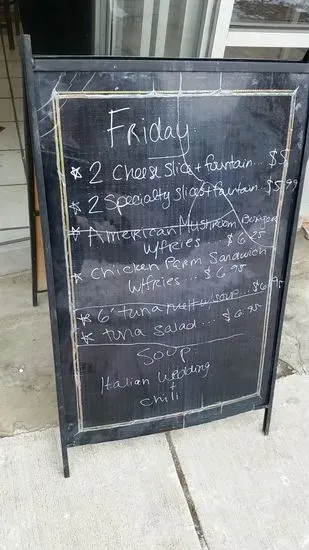 Friday
☆ 2 Cheese Slice + fountain... $5
☆ 2 Specialty Slices + fountain. $5.99
☆ American Mushroom Burger
w/fries ... $6.25
☆ Chicken Parm Sandwich
w/fries ... $6.95
☆ 6" tuna melt w/soup... $6.95
☆ tuna salad ... $6.95
Soup
Italian Wedding
+
chili